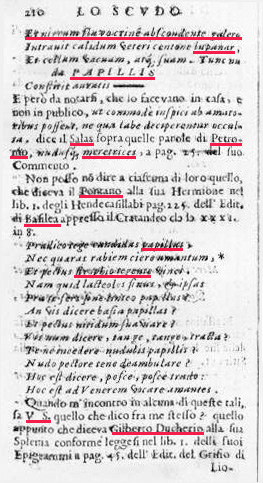 210 LO SCUDO
Et nigrum flavo crine abscondente galero
Intravit calidum veteri centone lupanar,
Et cellam vacuam, atq; suam. Tunc nu
da PAPILLIS
Constitit auratis
E però da notarsi, che lo facevano in casa, e
non in publico, ut commodè inspici ab amato-
ribus possent, ne qua labe deciperentur occul-
ta. dice il Salas sopra quelle parole di Petro-
nio, nudasq; meretrices, a pag. 25. del suo
Commento.
Non posso nè dire a ciascuna di loro quello,
che diceva il Pontano alla sua Hermione nel
lib. 1. degli Hendecasillabi pag. 225. dell' Edit.
di Basilea appresso il Cratandro del XXXI.
in 8.
Præduco tege candidas papillas,
Nec quæras rabiem ciere amantum, *
Et pectus strophio tegente vinci.
Nam quid lacteolos sinus, & ipsas
Præ te fers sine linteo papillas?
An vis dicere basia papillas?
Et pectus nitidum suaviare?
Vis num dicere, tange, tange, tracta?
Te ne incedere nudulis papillis?
Nudo pectore tene deambulare?
Hoc est dicere, posce, posce trado:
Hoc est ad Venerem vocare amantes.
Quando m'incontro in alcuna di queste tali,
sa V. S. quello che dico fra me stesso? quello
appunto che diceva Gilberto Ducherio alla sua
conforme leggesi nel lib. 1. delli suoi
Epigrammi a pag. 45. dell' Ed. del Grifio di
Lio-